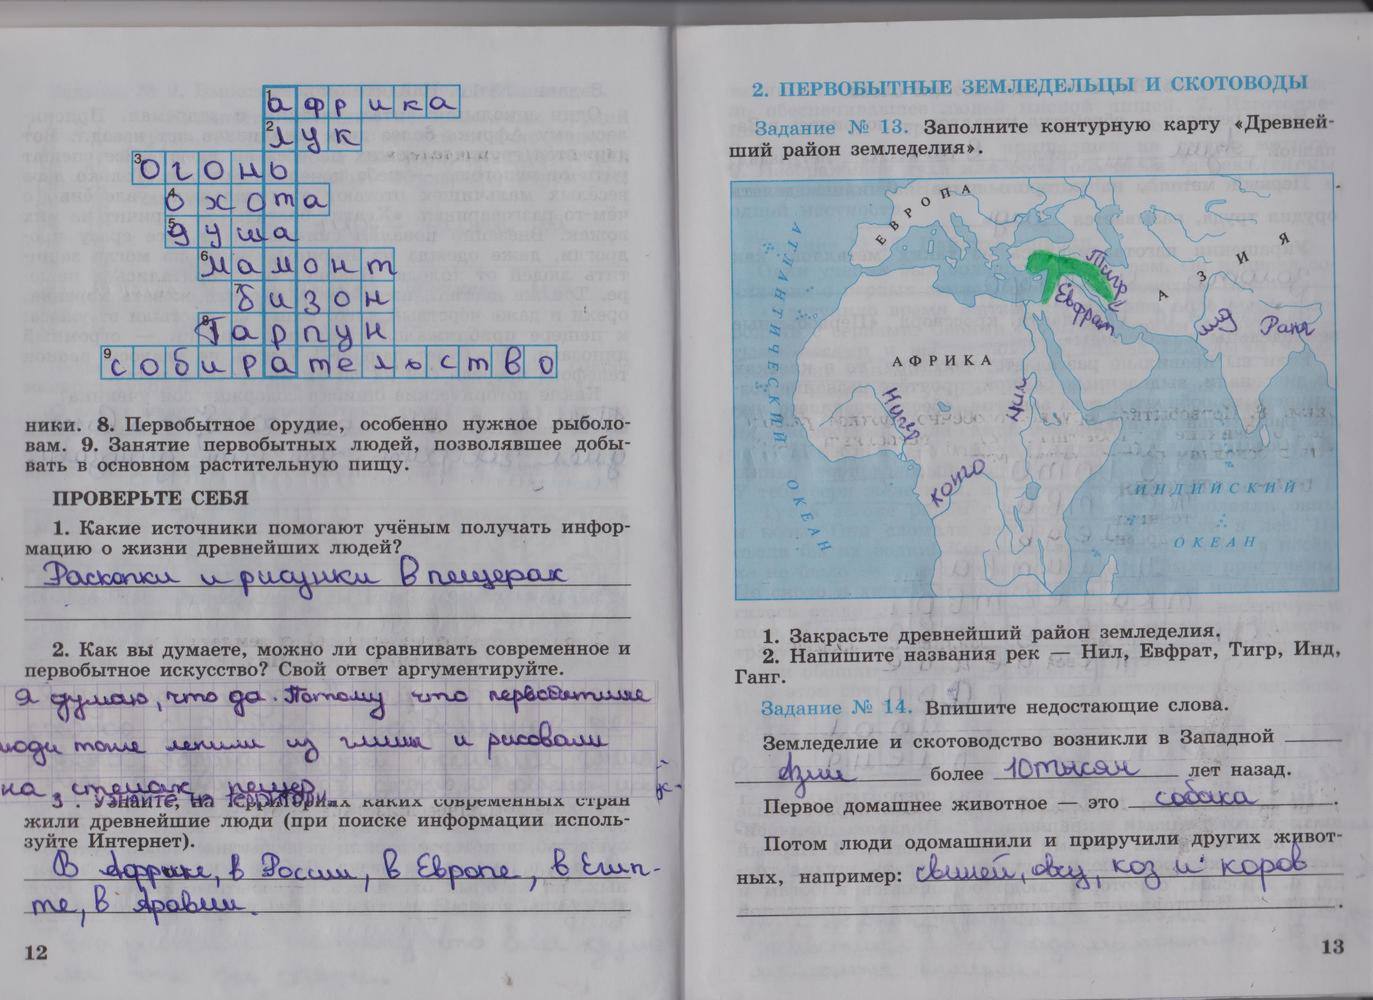 1 африка
2 лук
3 огонь
4 охота
5 душа
6 мамонт
7 бизон
8 гарпун
9 собирательство
ники. 8. Первобытное орудие, особенно нужное рыболо-
вам. 9. Занятие первобытных людей, позволявшее добы-
вать в основном растительную пищу.
ПРОВЕРЬТЕ СЕБЯ
1. Какие источники помогают учёным получать инфор-
мацию о жизни древнейших людей?
Раскопки и рисунки в пещерах
2. Как вы думаете, можно ли сравнивать современное и
первобытное искусство? Свой ответ аргументируйте.
Я думаю, что да. Потому что первобытные
люди тоже лепили из глины и рисовали
на стенах пещер.
3. Узнайте, на территориях каких современных стран
жили древнейшие люди (при поиске информации исполь-
зуйте Интернет).
В Африке, в России, в Европе, в Егип-
те, в Аравии.
12
2. ПЕРВОБЫТНЫЕ ЗЕМЛЕДЕЛЬЦЫ И СКОТОВОДЫ
Задание № 13. Заполните контурную карту «Древней-
ший район земледелия».
ЕВРОПА
АЗИЯ
АФРИКА
АТЛАНТИЧЕСКИЙ ОКЕАН
Тигр
Евфрат
Инд
Нигер
Нил
Конго
ИНДИЙСКИЙ
ОКЕАН
1. Закрасьте древнейший район земледелия.
2. Напишите названия рек — Нил, Евфрат, Тигр, Инд,
Ганг.
Задание № 14. Впишите недостающие слова.
Земледелие и скотоводство возникли в Западной
Азии более 10 тысяч лет назад.
Первое домашнее животное — это собака.
Потом люди одомашнили и приручили других живот-
ных, например: свиней, овец, коз и коров.
13